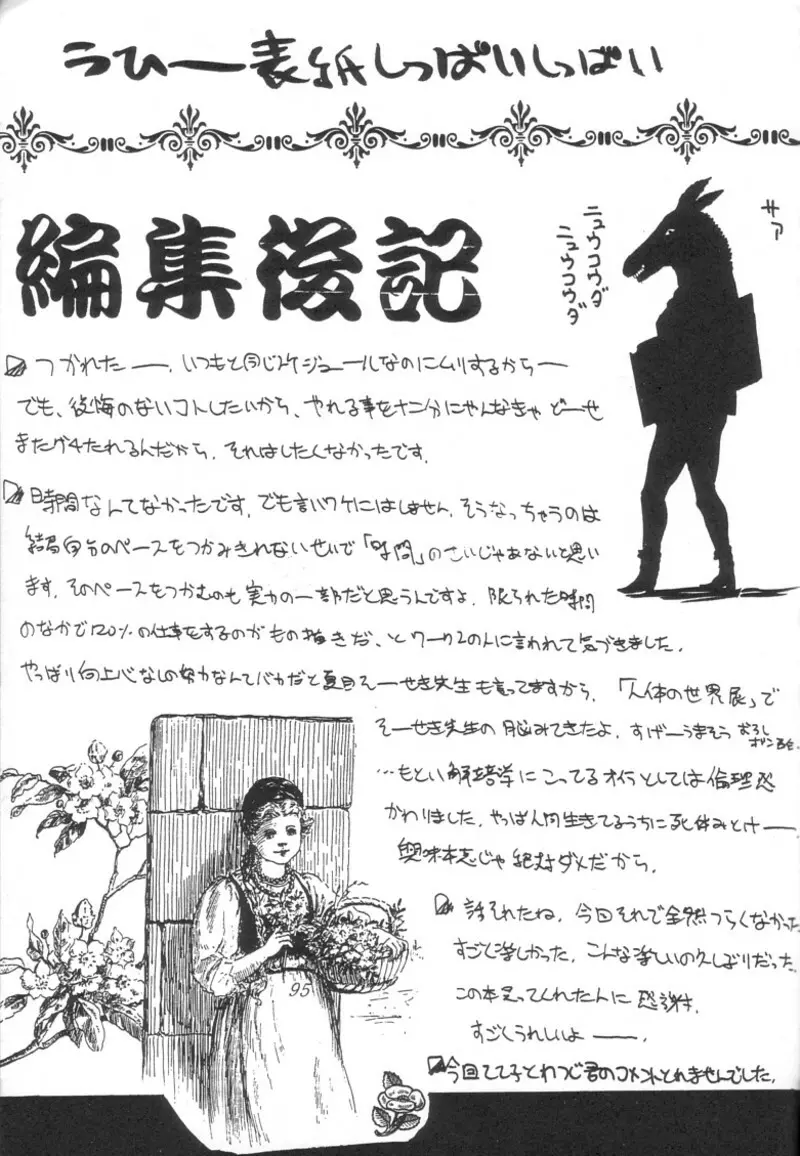 うひー表紙しっぱいしっぱい
編集後記
サァ
ニュウコウダ
ニュウコウダ
つかれたー、いつもと同じスケジュールなのにムリするからー
でも、後悔のないコトしたいから、やれる事を十二分にやんなきゃどーせ
またグチたれるんだから、それはしたくなかったです。
時間なんてなかったです。でも言いワケにはしません。そうなっちゃうのは
結局自分のペースをつかみきれないせいで「時間」のせいじゃあないと思い
ます。そのペースをつかむのも実力の一部だと思うんですよ。限られた時間
のなかで120%の仕事をするのがもの描きだ、とワーク2の人に言われて気づきました。
やっぱり向上心なしの努力なんてバカだと夏目そーせき先生も言ってますから。「人体の世界展」で
そーせき先生の脳みてきたよ。すげーうまそう おろしポン酢で
…もとい解剖学にこってるオイラとしては倫理感
かわりました。やっぱ人間生きてるうちに死体みとけー
興味本意じゃ絶対ダメだから。
話それたね。今回それで全然つらくなかった
すごく楽しかった。こんな楽しいの久しぶりだった。
この本買ってくれたんに感謝。
すごくうれしいよー。
95
今回てて子とわつじ君のコメントとれませんでした。